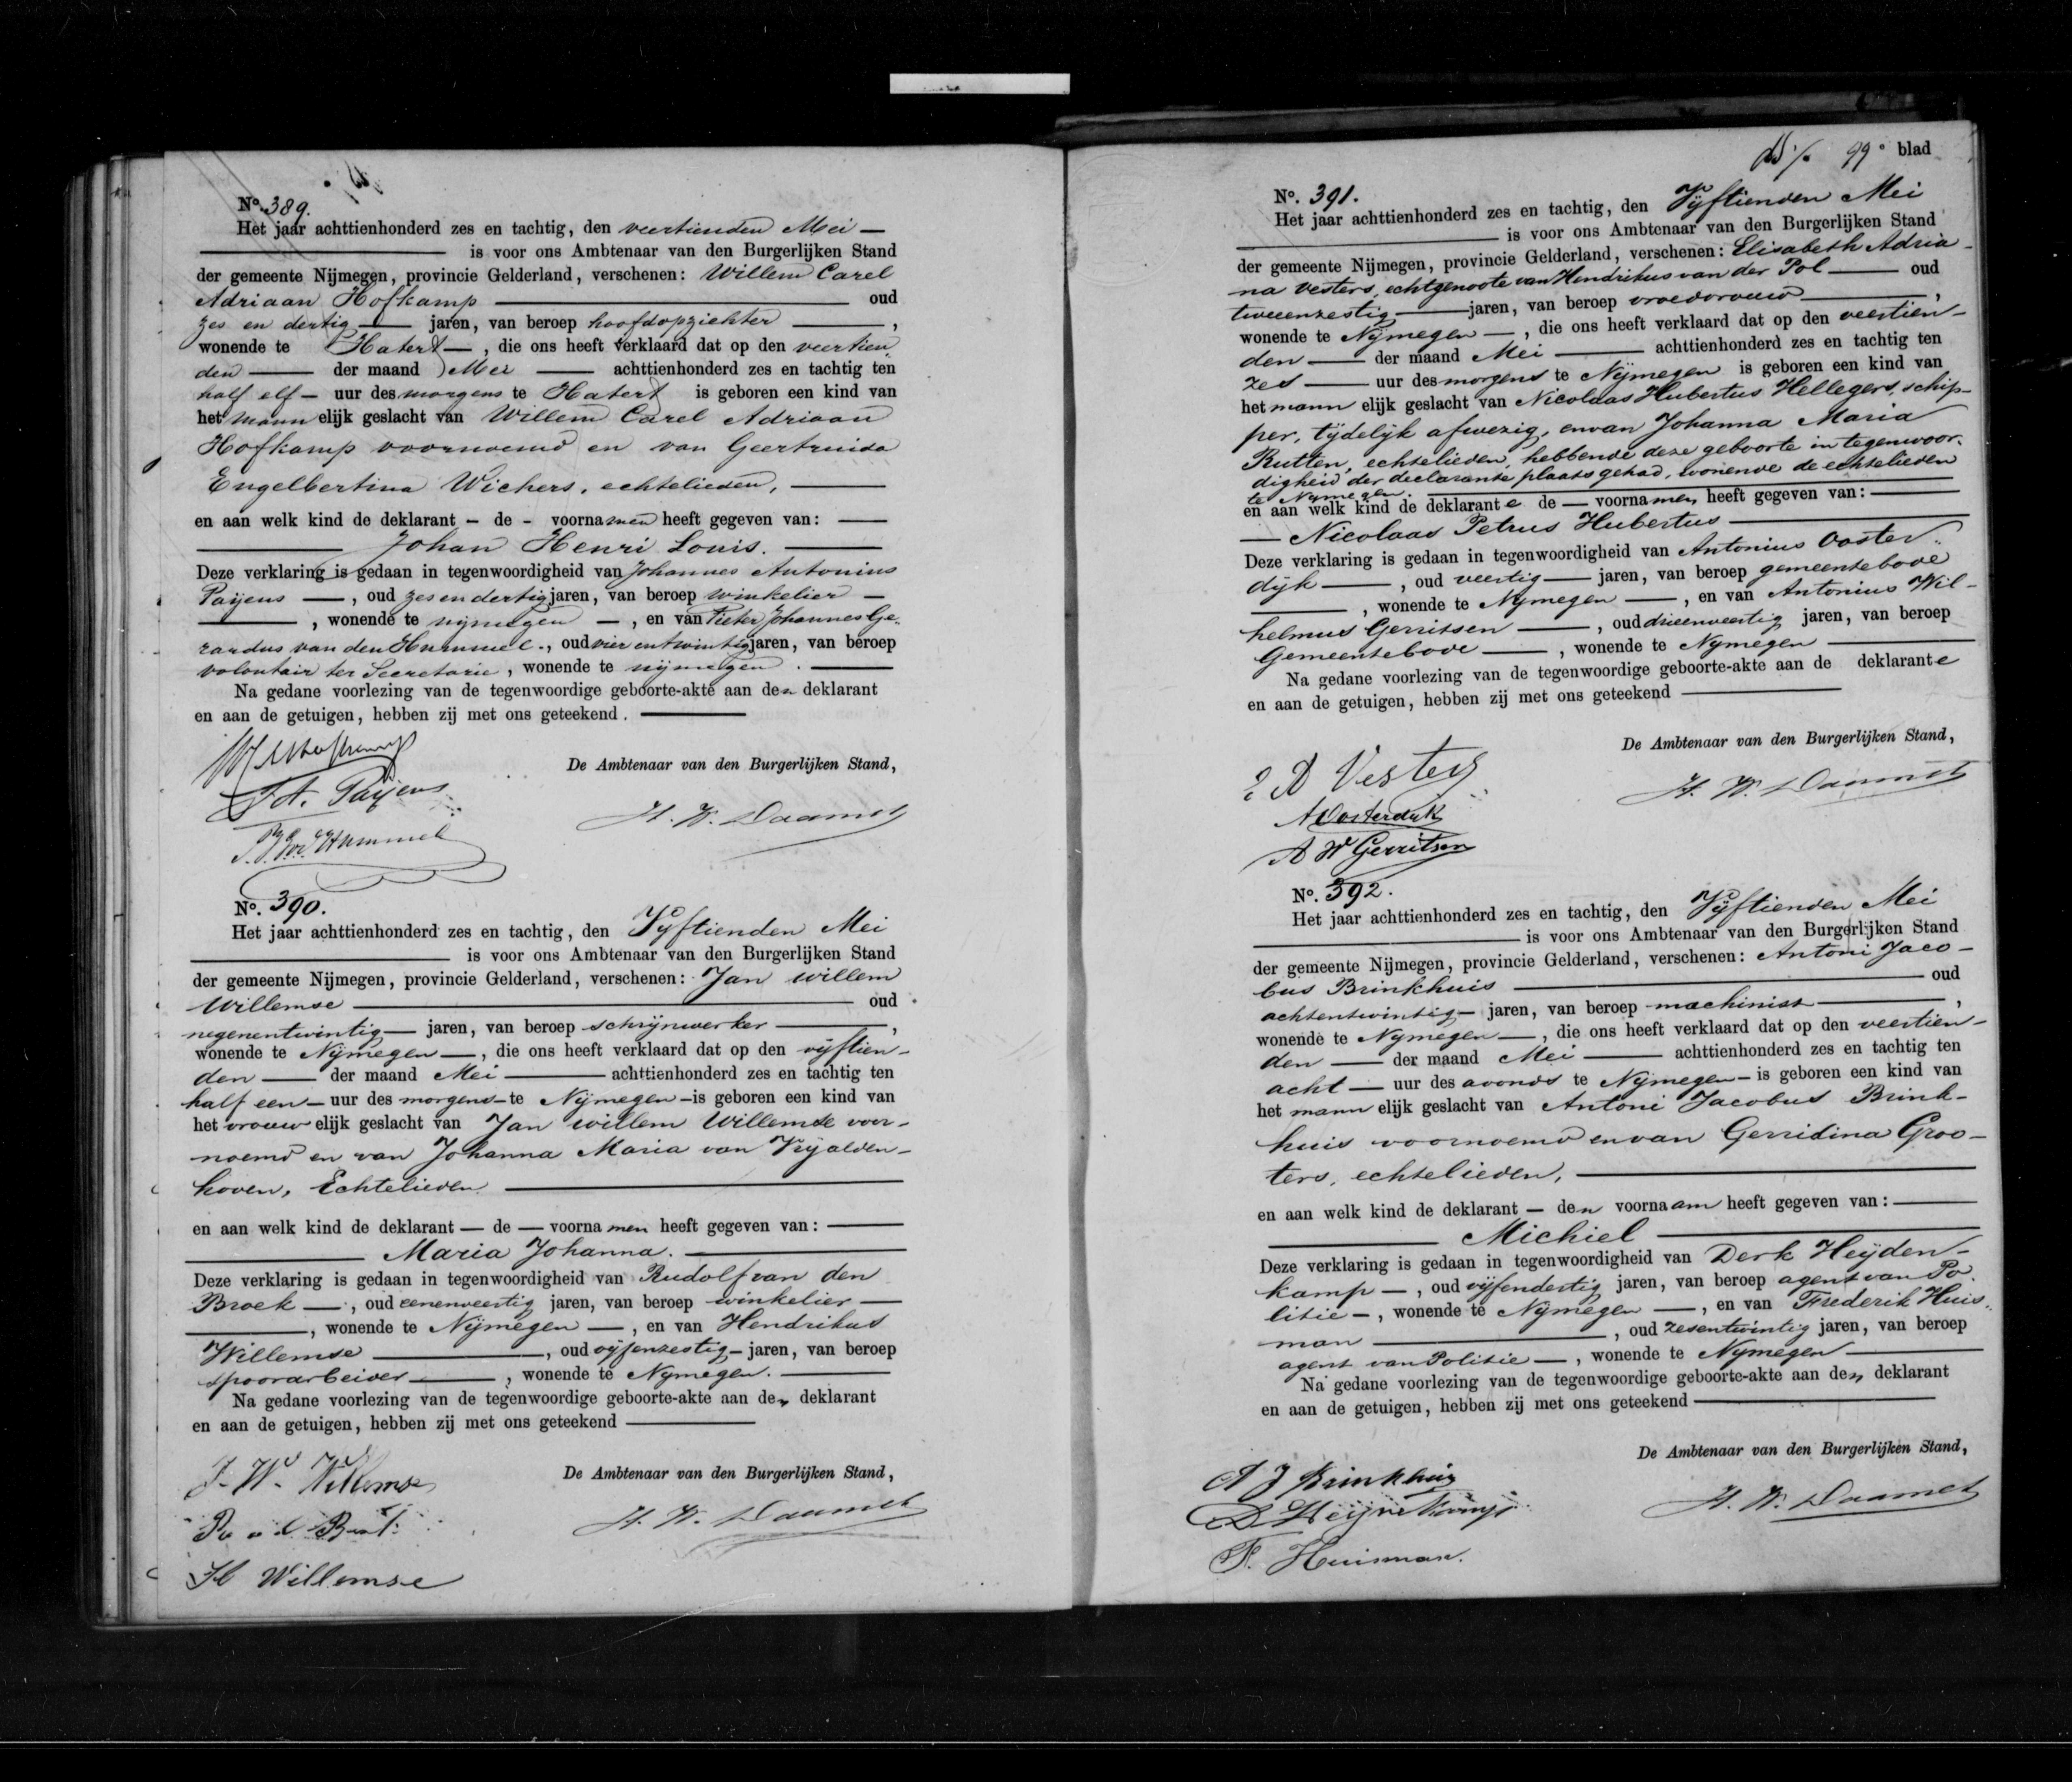 No. 389.
Het jaar achttienhonderd zes en tachtig, den veertienden Mei —
is voor ons Ambtenaar van den Burgerlijken Stand
der gemeente Nijmegen, provincie Gelderland, verschenen: Willem Carel
Adriaan Hofkamp — oud
zes en dertig — jaren, van beroep hoofdopzichter —,
wonende te Hatert —, die ons heeft verklaard dat op den veertien
den — der maand Mei — achttienhonderd zes en tachtig ten
half elf — uur des morgens te Hatert is geboren een kind van
het mann elijk geslacht van Willem Carel Adriaan
Hofkamp voornoemd en van Geertruida
Engelbertina Wichers, echtelieden, —
en aan welk kind de deklarant — de — voornamen heeft gegeven van: —
— Johan Henri Louis. —
Deze verklaring is gedaan in tegenwoordigheid van Johannes Antonius
Paijens —, oud zes en dertig jaren, van beroep winkelier —
—, wonende te nijmegen —, en van Pieter Johannes Ge-
rardus van den Hummel., oud vier en twintig jaren, van beroep
volontair ter Secretarie, wonende te nijmegen. —
Na gedane voorlezing van de tegenwoordige geboorte-akte aan den deklarant
en aan de getuigen, hebben zij met ons geteekend. —
De Ambtenaar van den Burgerlijken Stand,
J. A. Paijens
H. W. Daamet
P.J.G.v.d. Hummel
No. 390.
Het jaar achttienhonderd zes en tachtig, den Vijftienden Mei
— is voor ons Ambtenaar van den Burgerlijken Stand
der gemeente Nijmegen, provincie Gelderland, verschenen: Jan willem
Willemse — oud
negenentwintig — jaren, van beroep schrijnwerker —,
wonende te Nijmegen —, die ons heeft verklaard dat op den vijftien-
den — der maand Mei — achttienhonderd zes en tachtig ten
half een — uur des morgens — te Nijmegen — is geboren een kind van
het vrouw elijk geslacht van Jan willem Willemse voor-
noemd en van Johanna Maria van Vrijalden-
hoven, Echtelieden —
en aan welk kind de deklarant — de — voorna men heeft gegeven van: —
— Maria Johanna. —
Deze verklaring is gedaan in tegenwoordigheid van Rudolf van den
Broek —, oud eenenveertig jaren, van beroep winkelier —
—, wonende te Nijmegen —, en van Hendrikus
Willemse —, oud vijfenzestig — jaren, van beroep
spoorarbeider —, wonende te Nijmegen. —
Na gedane voorlezing van de tegenwoordige geboorte-akte aan den deklarant
en aan de getuigen, hebben zij met ons geteekend —
J. W. Willemse
De Ambtenaar van den Burgerlijken Stand,
H. W. Daamet
H Willemse
99e blad
No. 391.
Het jaar achttienhonderd zes en tachtig, den Vijftienden Mei
— is voor ons Ambtenaar van den Burgerlijken Stand
der gemeente Nijmegen, provincie Gelderland, verschenen: Elisabeth Adria-
na Vesters, echtgenoote van Hendrikus van der Pol — oud
tweeenzestig — jaren, van beroep vroedvrouw —,
wonende te Nijmegen —, die ons heeft verklaard dat op den veertien-
den — der maand Mei — achttienhonderd zes en tachtig ten
zes — uur des morgens te Nijmegen is geboren een kind van
het mann elijk geslacht van Nicolaas Hubertus Hellegers, schip-
per, tijdelijk afwezig, en van Johanna Maria
Rutten, echtelieden, hebbende deze geboorte in tegenwoor-
digheid der declarante plaats gehad, wonende de echtelieden
te Nijmegen.
en aan welk kind de deklarant e de — voorna men heeft gegeven van: —
— Nicolaas Petrus Hubertus —
Deze verklaring is gedaan in tegenwoordigheid van Antonius Ooster-
dijk —, oud veertig — jaren, van beroep gemeentebode
—, wonende te Nijmegen —, en van Antonius Wil-
helmus Gerritsen —, oud drieenveertig jaren, van beroep
Gemeentebode —, wonende te Nijmegen —
Na gedane voorlezing van de tegenwoordige geboorte-akte aan de deklarante
en aan de getuigen, hebben zij met ons geteekend —
De Ambtenaar van den Burgerlijken Stand,
E A Vesters
H. W. Daamet
A Oosterdijk
A W Gerritsen
No. 392.
Het jaar achttienhonderd zes en tachtig, den Vijftienden Mei
— is voor ons Ambtenaar van den Burgerlijken Stand
der gemeente Nijmegen, provincie Gelderland, verschenen: Antoni Jaco-
bus Brinkhuis — oud
achtentwintig — jaren, van beroep machinist —,
wonende te Nijmegen —, die ons heeft verklaard dat op den veertien-
den — der maand Mei — achttienhonderd zes en tachtig ten
acht — uur des avonds te Nijmegen — is geboren een kind van
het mann elijk geslacht van Antoni Jacobus Brink-
huis voornoemd en van Gerridina Groo-
ters, echtelieden, —
en aan welk kind de deklarant — den voornaam heeft gegeven van: —
— Michiel —
Deze verklaring is gedaan in tegenwoordigheid van Derk Heijden-
kamp —, oud vijfendertig jaren, van beroep agent van Po-
litie —, wonende te Nijmegen —, en van Frederik Huis-
man —, oud zesentwintig jaren, van beroep
agent van Politie —, wonende te Nijmegen —
Na gedane voorlezing van de tegenwoordige geboorte-akte aan den deklarant
en aan de getuigen, hebben zij met ons geteekend —
De Ambtenaar van den Burgerlijken Stand,
A J Brinkhuis
H. W. Daamet
D Heijdenkamp
F. Huisman.